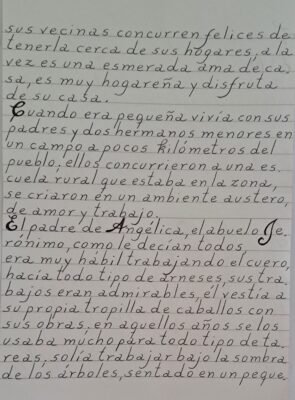 sus vecinas concurren felices de
tenerla cerca de sus hogares, a la
vez es una esmerada ama de ca-
sa, es muy hogareña y disfruta
de su casa.
Cuando era pequeña vivía con sus
padres y dos hermanos menores en
un campo a pocos kilómetros del
pueblo, ellos concurrieron a una es-
cuela rural que estaba en la zona,
se criaron en un ambiente austero,
de amor y trabajo.
El padre de Angélica, el abuelo Je-
rónimo, como le decían todos
era muy habil trabajando el cuero,
hacía todo tipo de arneses, sus tra-
bajos eran admirables, él vestía a
su propia tropilla de caballos con
sus obras, en aquellos años se los
usaba mucho para todo tipo de ta-
reas, solía trabajar bajo la sombra
de los árboles, sentado en un peque